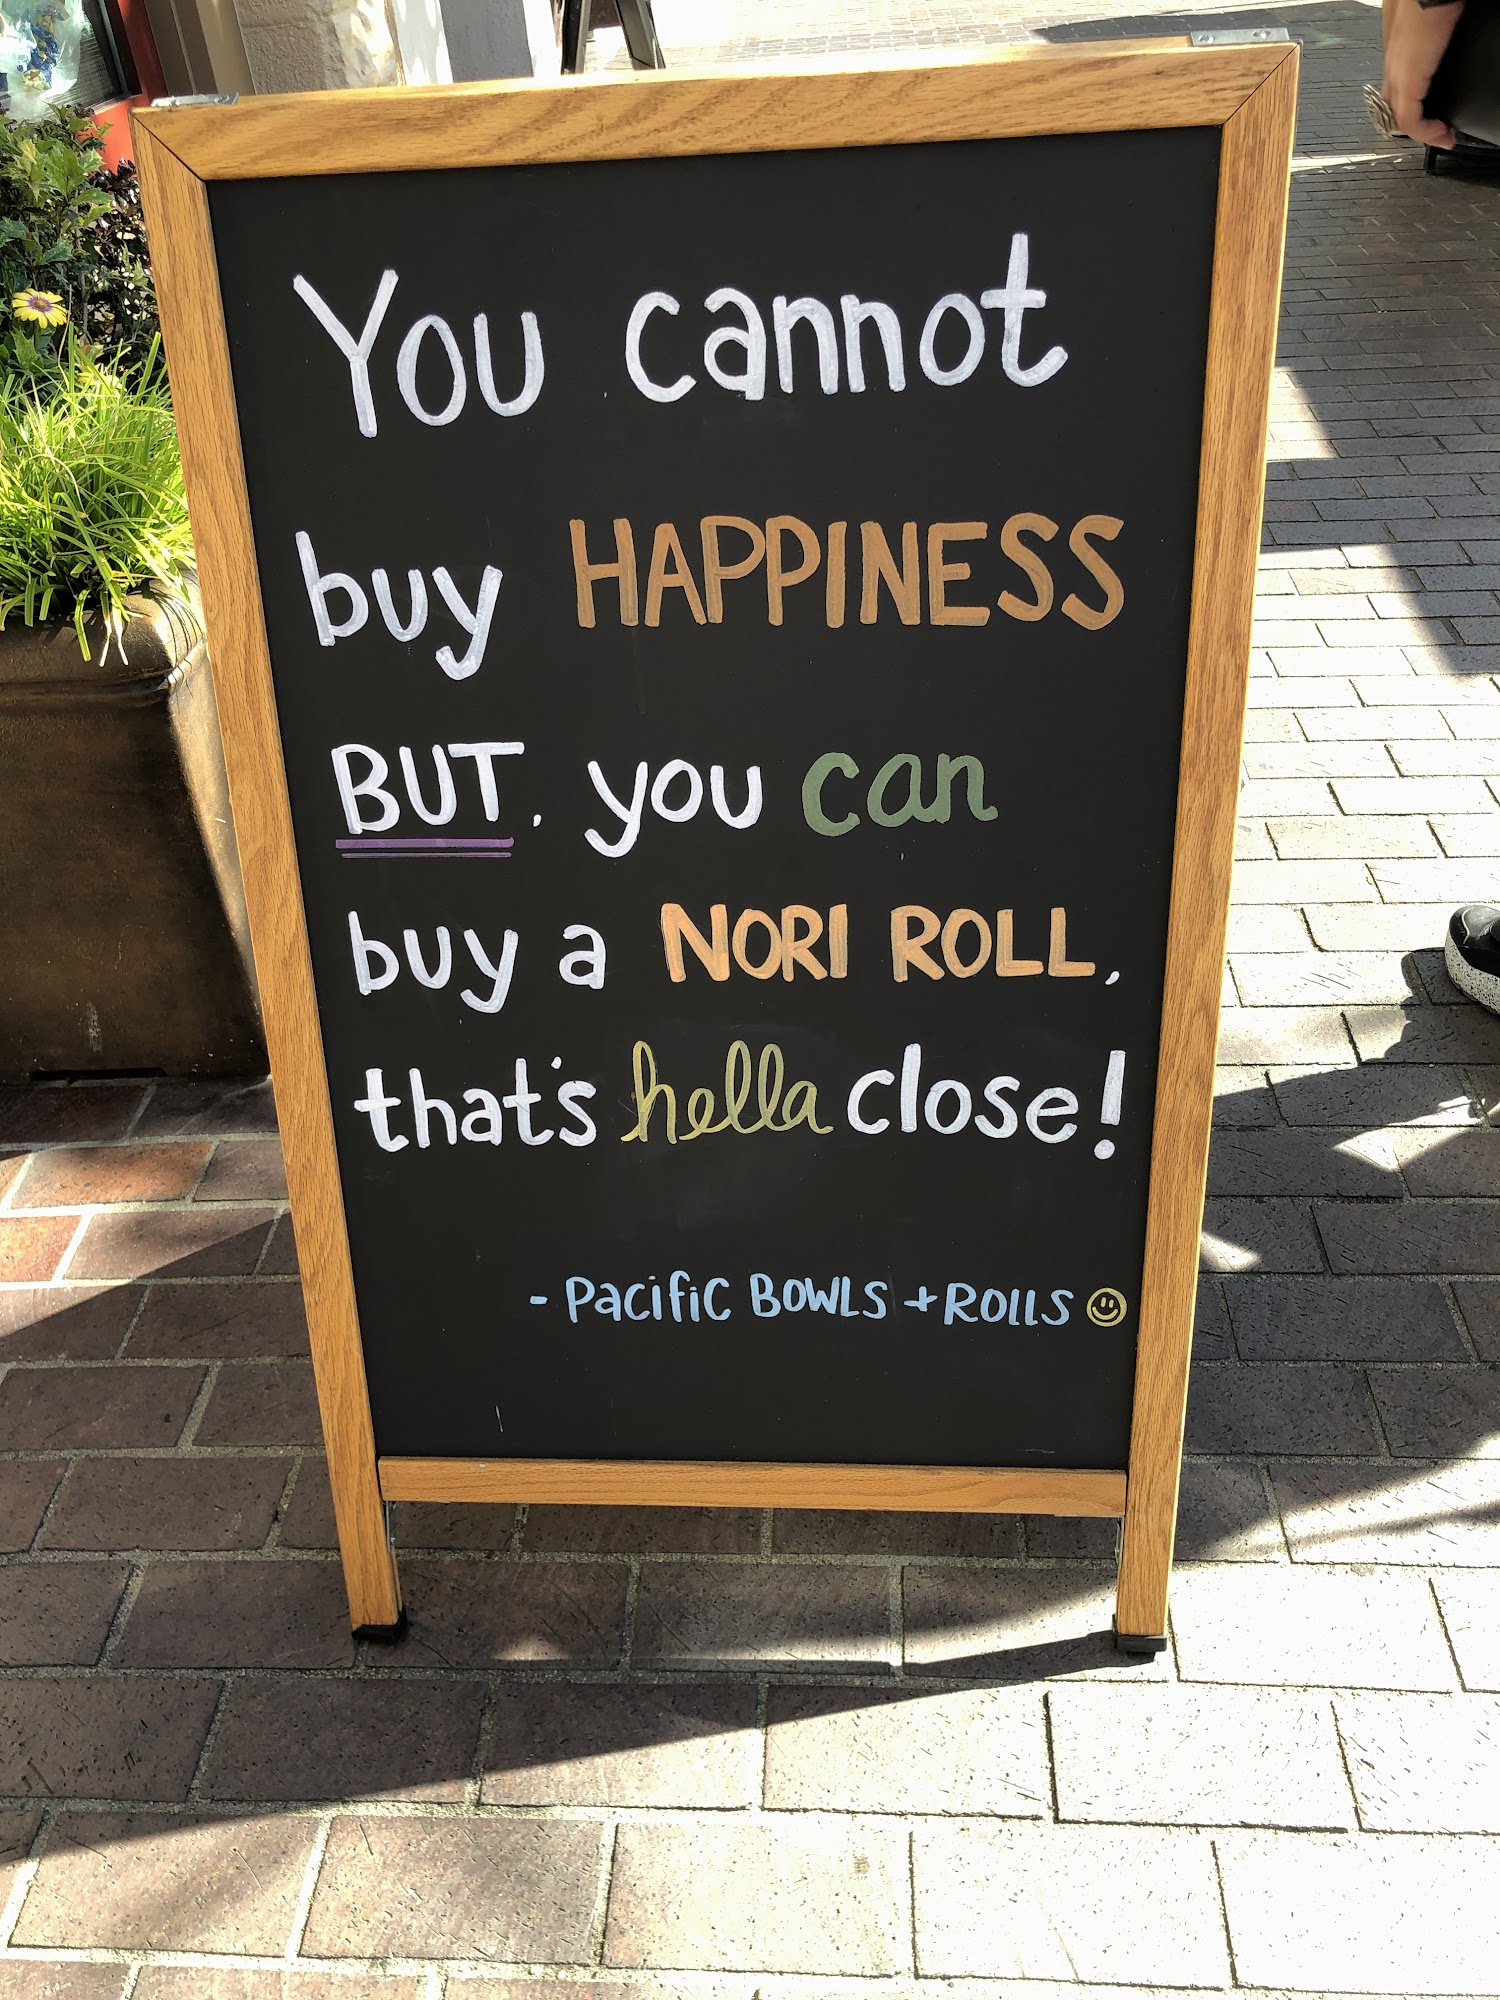 You cannot
buy HAPPINESS
BUT, you can
buy a NORI ROLL,
that's hella close!
- PACIFIC BOWLS + ROLLS